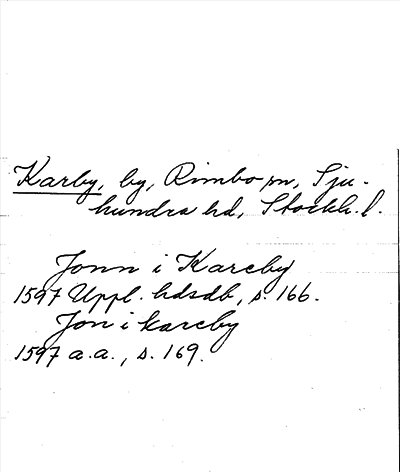 Karby, by, Rimbo sn, Sju-
hundra hd, Stockh. l.
Jonn i Kareby
1597 Uppl. hdsdb, s. 166.
Jon i kareby
1597 a.a., s. 169.